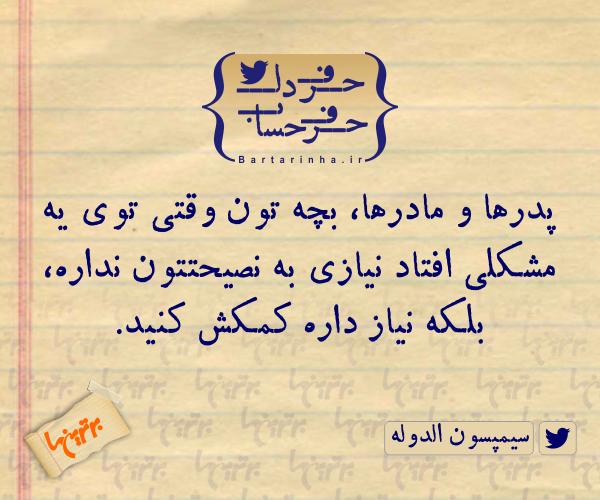 حرف دل
حرف حساب
Bartarinha.ir
پدرها و مادرها، بچه تون وقتی توی یه
مشکلی افتاد نیازی به نصیحتتون نداره،
بلکه نیاز داره کمکش کنید.
برترینها
سیمپسون الدوله